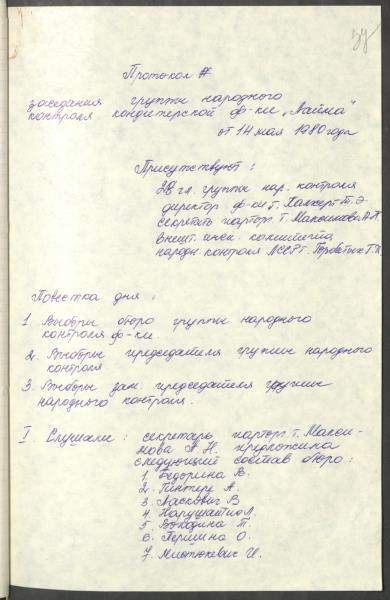 34
Протокол #
заседания группы народного
контроля кондитерской ф-ки „Лайма"
от 14 мая 1980 года
Присутствуют:
28 чл. группы нар. контроля
директор ф-ки т. Халжерт Т. Э.
секретарь партор. т. Максимова А.Н.
внешт. инсп. комитета
народн. контроля ЛССР т. Т.И.
Повестка дня:
1. Выборы бюро группы народного
контроля ф-ки.
2. Выборы председателя группы народного
контроля
3. Выборы зам. председателя группы
народного контроля.
I. Слушали: секретарь партор. т. Макси-
мова А. Н. предложила
следующий состав бюро:
1. Бедорина В.
2. Пинтере А.
3. Ласкович В
4. Нарушайтис Л.
5. Володина Т.
6. Першина О.
7. И.